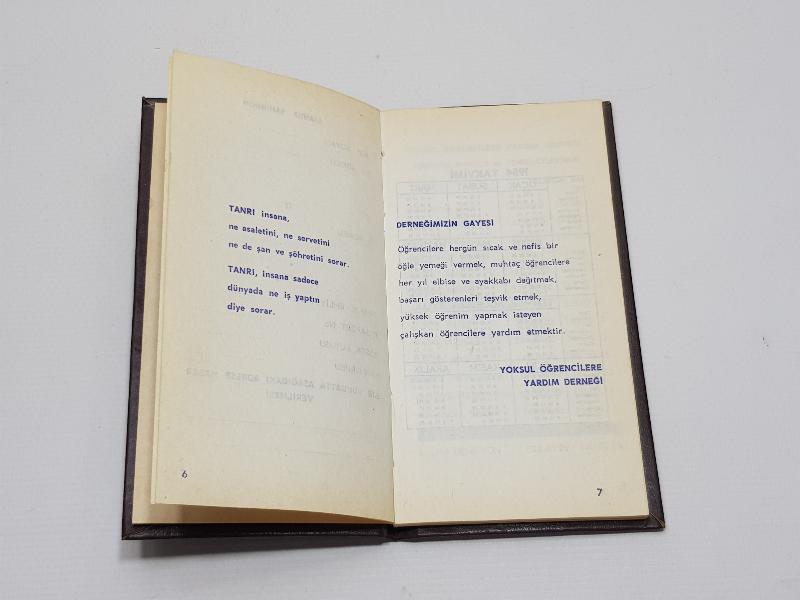 TANRI insana,
ne asaletini, ne servetini
ne de şan ve şöhretini sorar.
TANRI, insana sadece
dünyada ne iş yaptın
diye sorar.
6
DERNEĞİMİZİN GAYESİ
Öğrencilere hergün sıcak ve nefis bir
öğle yemeği vermek, muhtaç öğrencilere
her yıl elbise ve ayakkabı dağıtmak,
başarı gösterenleri teşvik etmek,
yüksek öğrenim yapmak isteyen
çalışkan öğrencilere yardım etmektir.
YOKSUL ÖĞRENCİLERE
YARDIM DERNEĞİ
7